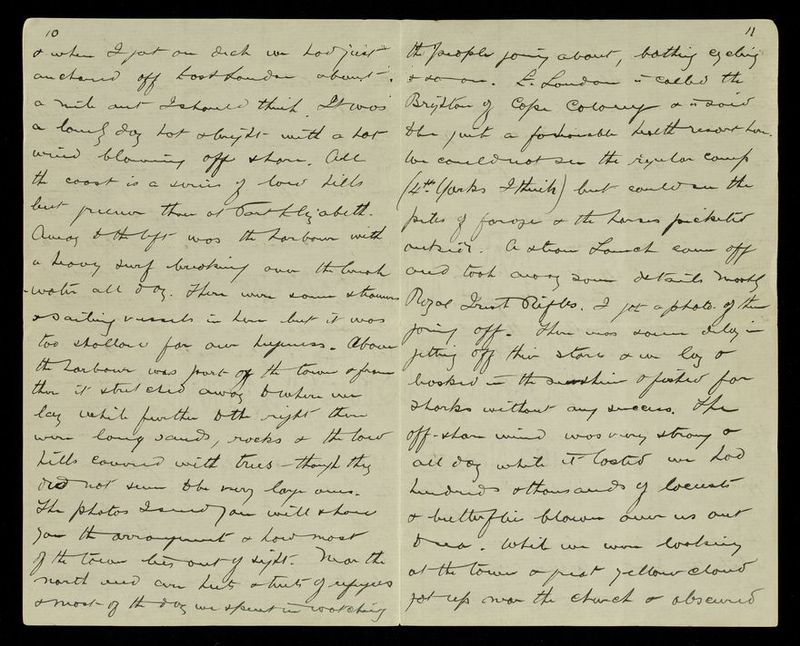 10
& when I got on deck we had just
anchored off East London about
a mile out I should think. It was
a lovely day hot & bright with a hot
wind blowing off shore. All
the coast is a series of low hills
but greener than at Port Elizabeth.
Away to the left was the harbour with
a heavy surf breaking over the break
-water all day. There were some steamers
& sailing vessels in here but it was
too shallow for our bigness. Above
the harbour was part of the town & from
there it stretched away to where we
lay while further to the right there
were long sands, rocks & the low
hills covered with trees - though they
did not seem to be very large ones.
The photos I send you will show
you the arrangement & how most
of the town lies out of sight. Near the
north end are huts & tents of refugees
& most of the day we spent in watching
11
the people going about, bathing cycling
& so on. E. London is called the
Brighton of Cape Colony & is said
to be quite a fashionable health resort here.
We could not see the regular camp
(4th Yorks I think) but could see the
piles of forage & the horses picketed
outside. A steam Launch came off
and took away some details mostly
Royal Irish Rifles. I got a photo of them
going off. There was some delay in
getting off their stores & we lay &
basked in the sunshine & fished for
sharks without any success. The
off-shore wind was very strong &
all day while it lasted we had
hundreds & thousands of locusts
& butterflies blown over us out
to sea. While we were looking
at the town a great yellow cloud
got up near the church & obscured